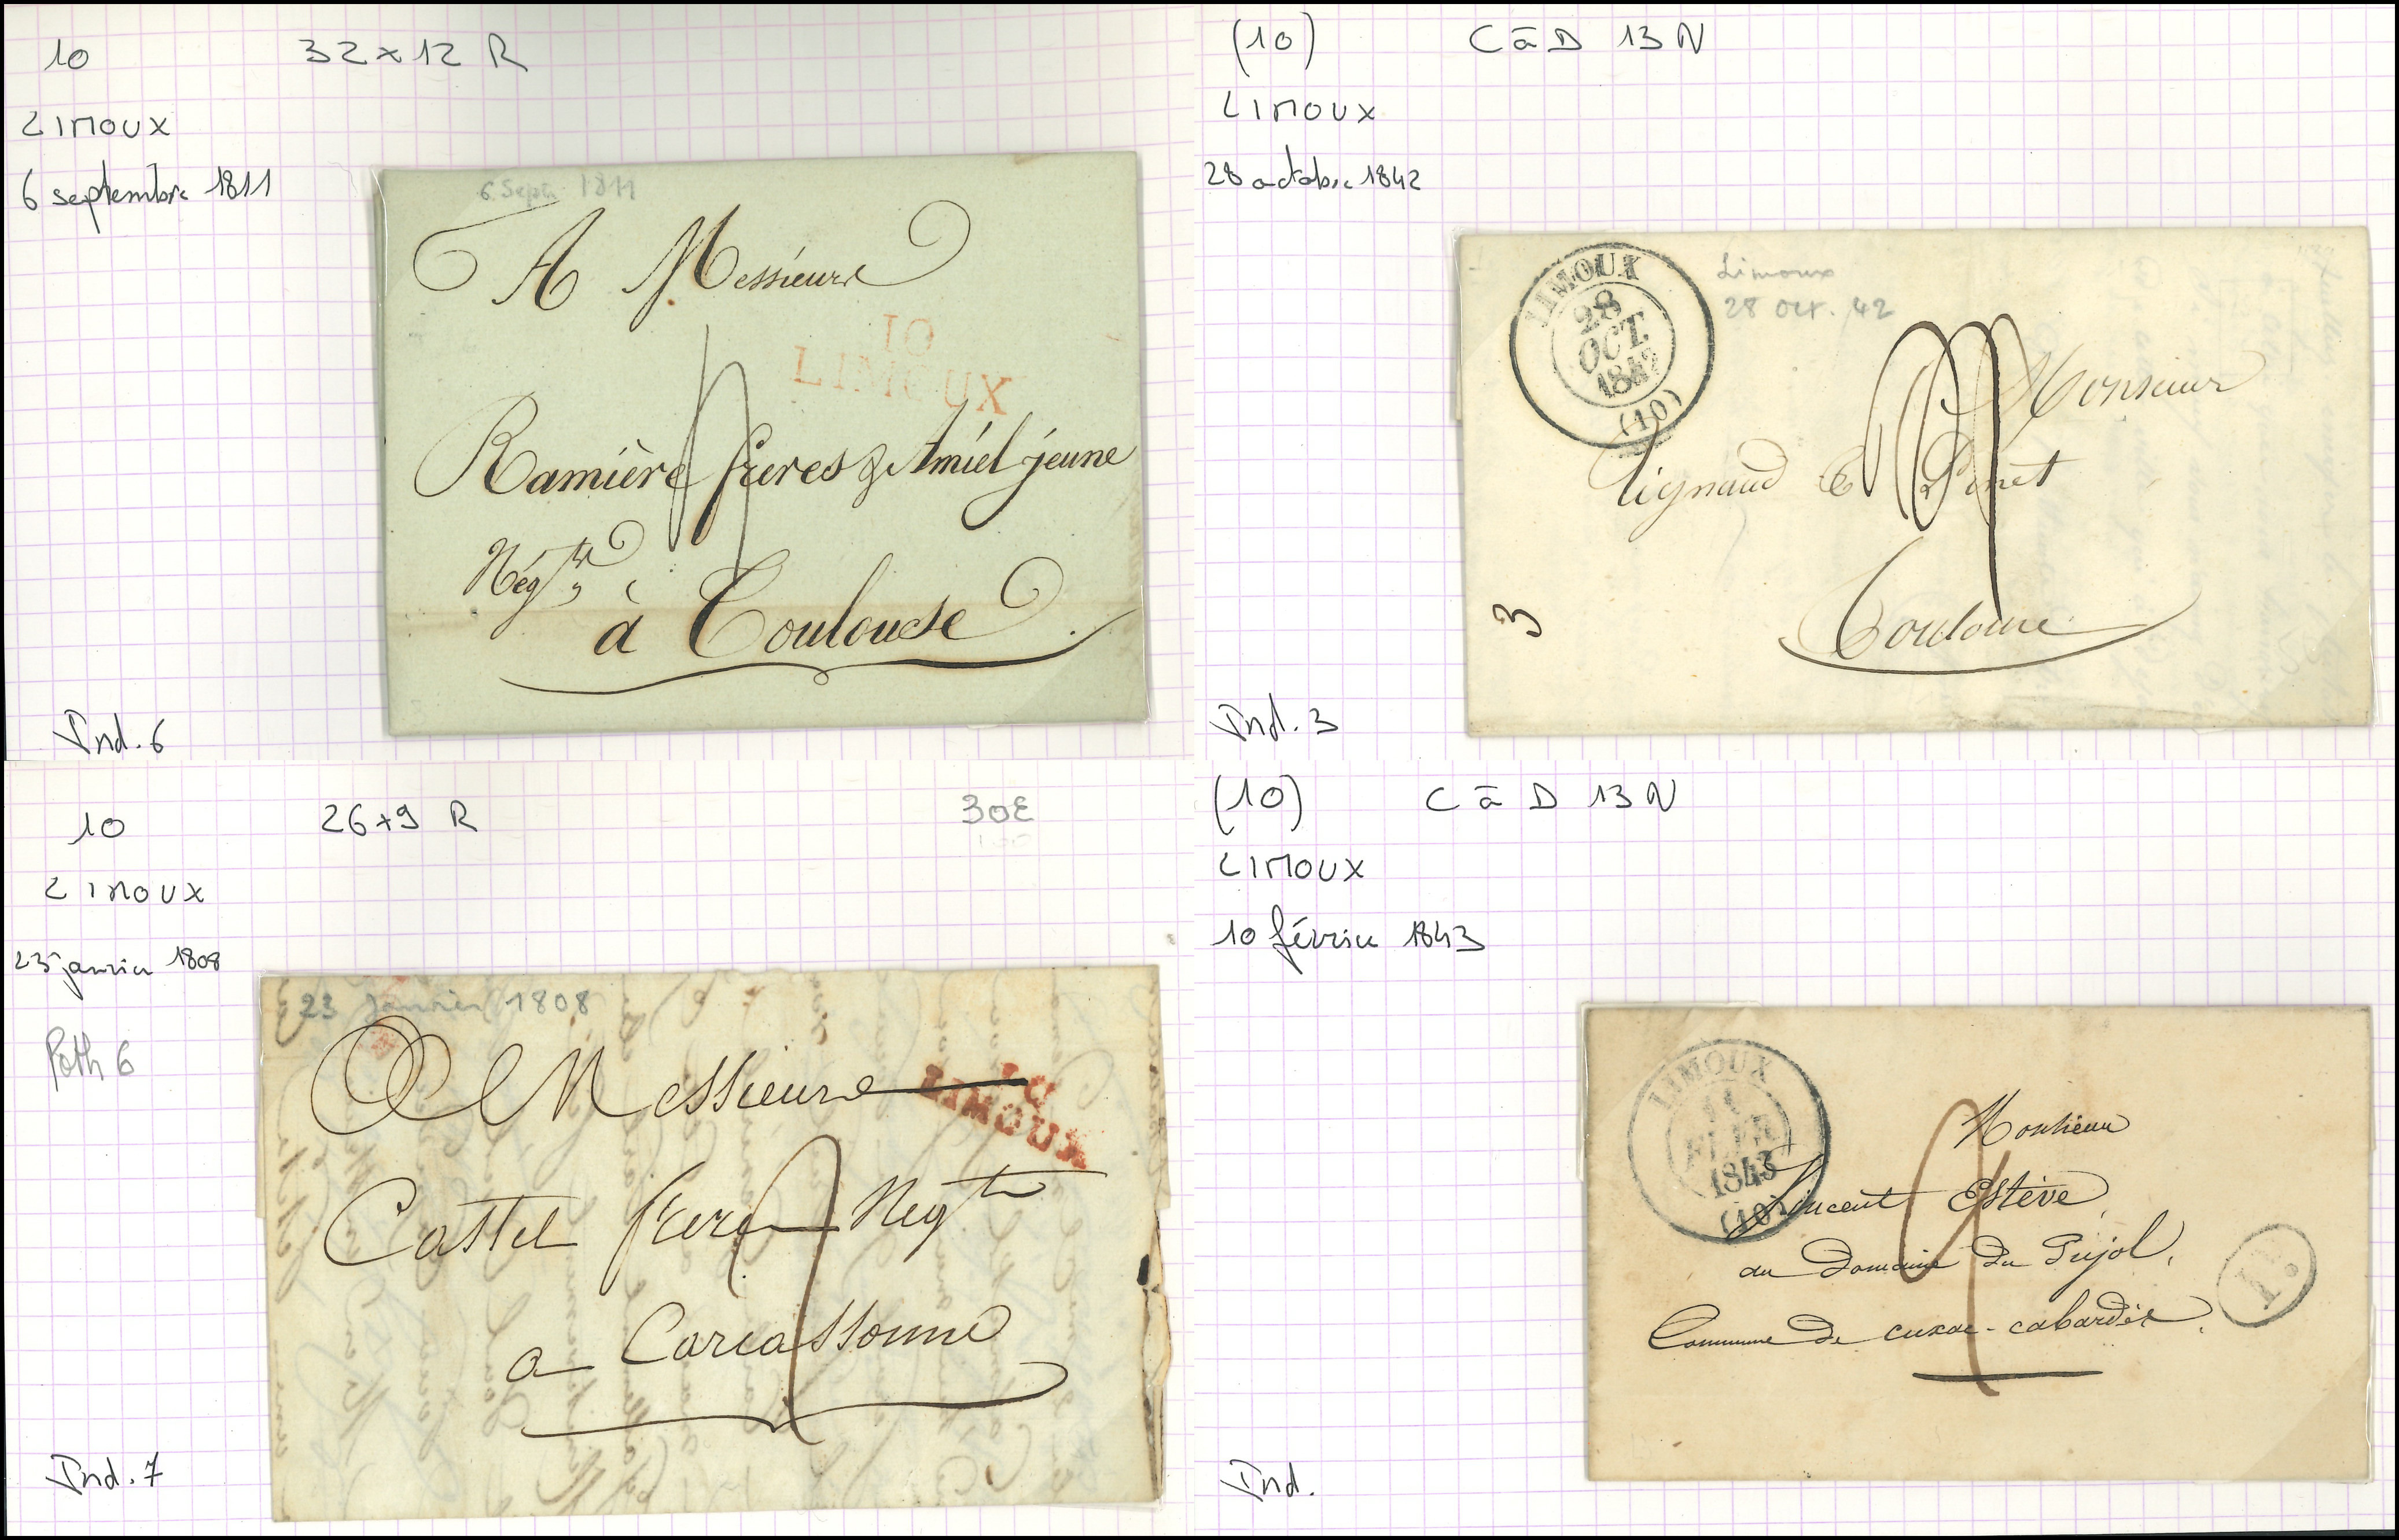 10 32x12 R
LIMOUX
6 septembre 1811
6 Septe 1811
A Messieurs
10
LIMOUX
Ramière freres & Amiel jeune
Négts
à Toulouse
Ind. 6
(10) C à D 13 N
LIMOUX
28 octobre 1842
LIMOUX
28
OCT.
1842
(10)
Limoux
28 Oct. 42
Monsieur
Lignaud &
Toulouse
3
Ind. 3
10 26x9 R 30€
LIMOUX
23 janvier 1808
Poth 6
23 Janvier 1808
Messieurs
10
LIMOUX
Castel freres Negts
a Carcassonne
Ind. 7
(10) C à D 13 N
LIMOUX
10 février 1843
LIMOUX
1843
(10)
Monsieur
Vincent Estève
au Domaine du Pujol,
Commune de cuxac-cabardès.
Ind.